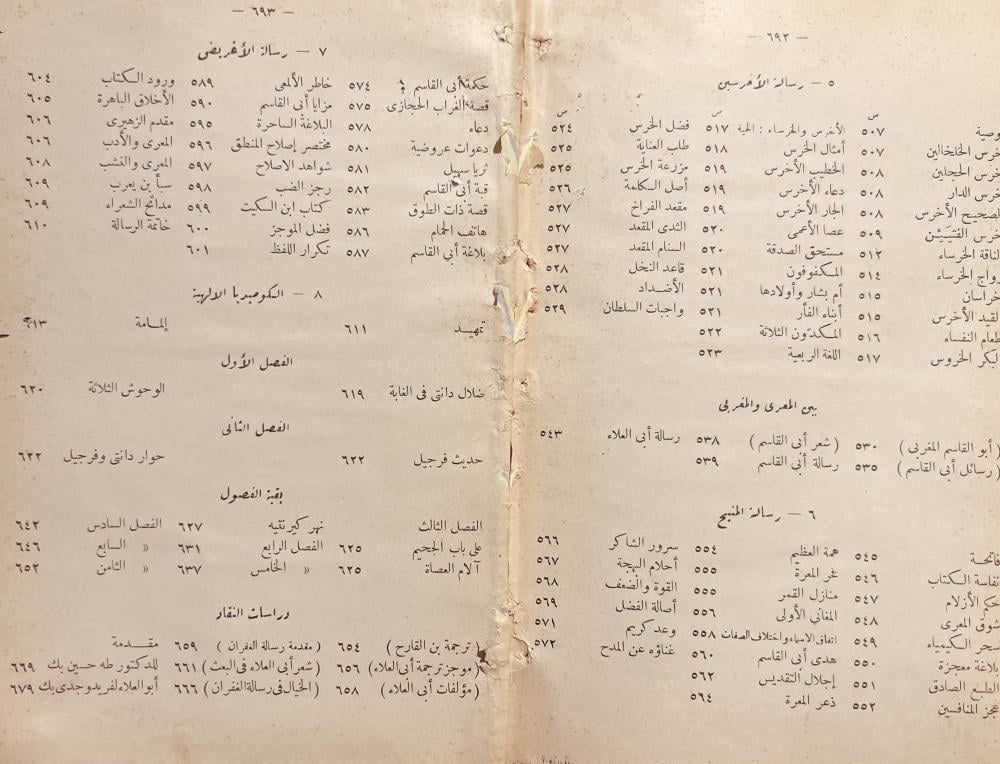 — ٦٩٢ —
٥ — رسالة الأخرسين
ص ص ص
٥٠٧ الأخرس والخرساء : الحية ٥١٧ فضل الخرس ٥٢٤
خرس الخلخالين ٥٠٧ أمثال الخرس ٥١٨ طلب العناية ٥٢٥
خرس الحجلين ٥٠٨ الخطيب الأخرس ٥١٩ مزرعة الخرس ٥٢٥
خرس الدار ٥٠٨ دعاء الأخرس ٥١٩ أصل الكلمة ٥٢٦
الصحيح الأخرس ٥٠٨ الجار الأخرس ٥١٩ مقعد الفراخ ٥٢٧
خرس الفتيين ٥٠٩ عصا الأعمى ٥٢٠ الثدى المقعد ٥٢٧
الناقة الخرساء ٥١٢ مستحق الصدقة ٥٢٠ السنام المقعد ٥٢٧
زواج الخرساء ٥١٤ المكفوفون ٥٢١ قاعد النخل ٥٢٨
خراسان ٥١٥ أم بشار وأولادها ٥٢١ الأضداد ٥٢٨
القيد الأخرس ٥١٥ أبناء الفأر ٥٢١ واجبات السلطان ٥٢٩
طعام النفساء ٥١٦ المكدّون الثلاثة ٥٢٢
البكر الخروس ٥١٧ اللغة الربعية ٥٢٣
بين المعرى والمغربى
( أبو القاسم المغربى ) ٥٣٠ ( شعر أبى القاسم ) ٥٣٨ رسالة أبى العلاء ٥٤٣
( رسائل أبى القاسم ) ٥٣٥ رسالة أبى القاسم ٥٣٩
٦ — رسالة المنيح
فاتحة ٥٤٥ همة العظيم ٥٥٤ سرور الشاكر ٥٦٦
نفاسة الكتاب ٥٤٦ فخر المعرة ٥٥٥ أحلام البهجة ٥٦٧
حكم الأزلام ٥٤٧ منازل القمر ٥٥٥ القوة والضعف ٥٦٨
شوق المعرى ٥٤٨ المغانى الأولى ٥٥٦ أصالة الفضل ٥٦٩
سحر الكيمياء ٥٤٩ اتفاق الاسماء واختلاف الصفات ٥٥٨ وعد كريم ٥٧١
بلاغة معجزة ٥٥٠ هدى أبى القاسم ٥٦٠ غناؤه عن المدح ٥٧٢
الطبع الصادق ٥٥١ إجلال التقديس ٥٦٢
عجز المنافسين ٥٥٢ ذعر المعرة ٥٦٤
— ٦٩٣ —
٧ — رسالة الأغريض
حكمة أبى القاسم ٥٧٤ خاطر الألمعى ٥٨٩ ورود الكتاب ٦٠٤
قصة الغراب الحجازى ٥٧٥ مزايا أبى القاسم ٥٩٠ الأخلاق الباهرة ٦٠٥
دعاء ٥٧٨ البلاغة الساحرة ٥٩٥ مقدم الزهيرى ٦٠٦
دعوات عروضية ٥٨٠ مختصر إصلاح المنطق ٥٩٦ المعرى والأدب ٦٠٦
ثريا سهيل ٥٨١ شواهد الاصلاح ٥٩٧ المعرى والنشب ٦٠٨
قبة أبى القاسم ٥٨٢ رجز الضب ٥٩٨ سبأ بن يعرب ٦٠٩
قصة ذات الطوق ٥٨٣ كتاب ابن السكيت ٥٩٩ مدائح الشعراء ٦٠٩
هاتف الحمام ٥٨٦ فضل الموجز ٦٠٠ خاتمة الرسالة ٦١٠
بلاغة أبى القاسم ٥٨٧ تكرار اللفظ ٦٠١
٨ — الكوميديا الالهية
تمهيد ٦١١ إلمامة ٦١٣
الفصل الأول
ضلال دانتى فى الغابة ٦١٩ الوحوش الثلاثة ٦٢٠
الفصل الثانى
حديث فرجيل ٦٢٢ حوار دانتى وفرجيل ٦٢٢
بقية الفصول
الفصل الثالث نهر كيرنتيه ٦٢٧ الفصل السادس ٦٤٢
على باب الجحيم ٦٢٥ الفصل الرابع ٦٣١ « السابع ٦٤٦
آلام العصاة ٦٢٥ « الخامس ٦٣٧ « الثامن ٦٥٢
دراسات النقاد
( ترجمة بن القارح ) ٦٥٤ ( مقدمة رسالة الغفران ) ٦٥٩ مقدمة
( موجز ترجمة أبى العلاء ) ٦٥٦ ( شعر أبى العلاء فى البعث ) ٦٦١ للدكتور طه حسين بك ٦٦٩
( مؤلفات أبى العلاء ) ٦٥٨ ( الخيال فى رسالة الغفران ) ٦٦٦ أبو العلاء لفريد وجدى بك ٦٧٩